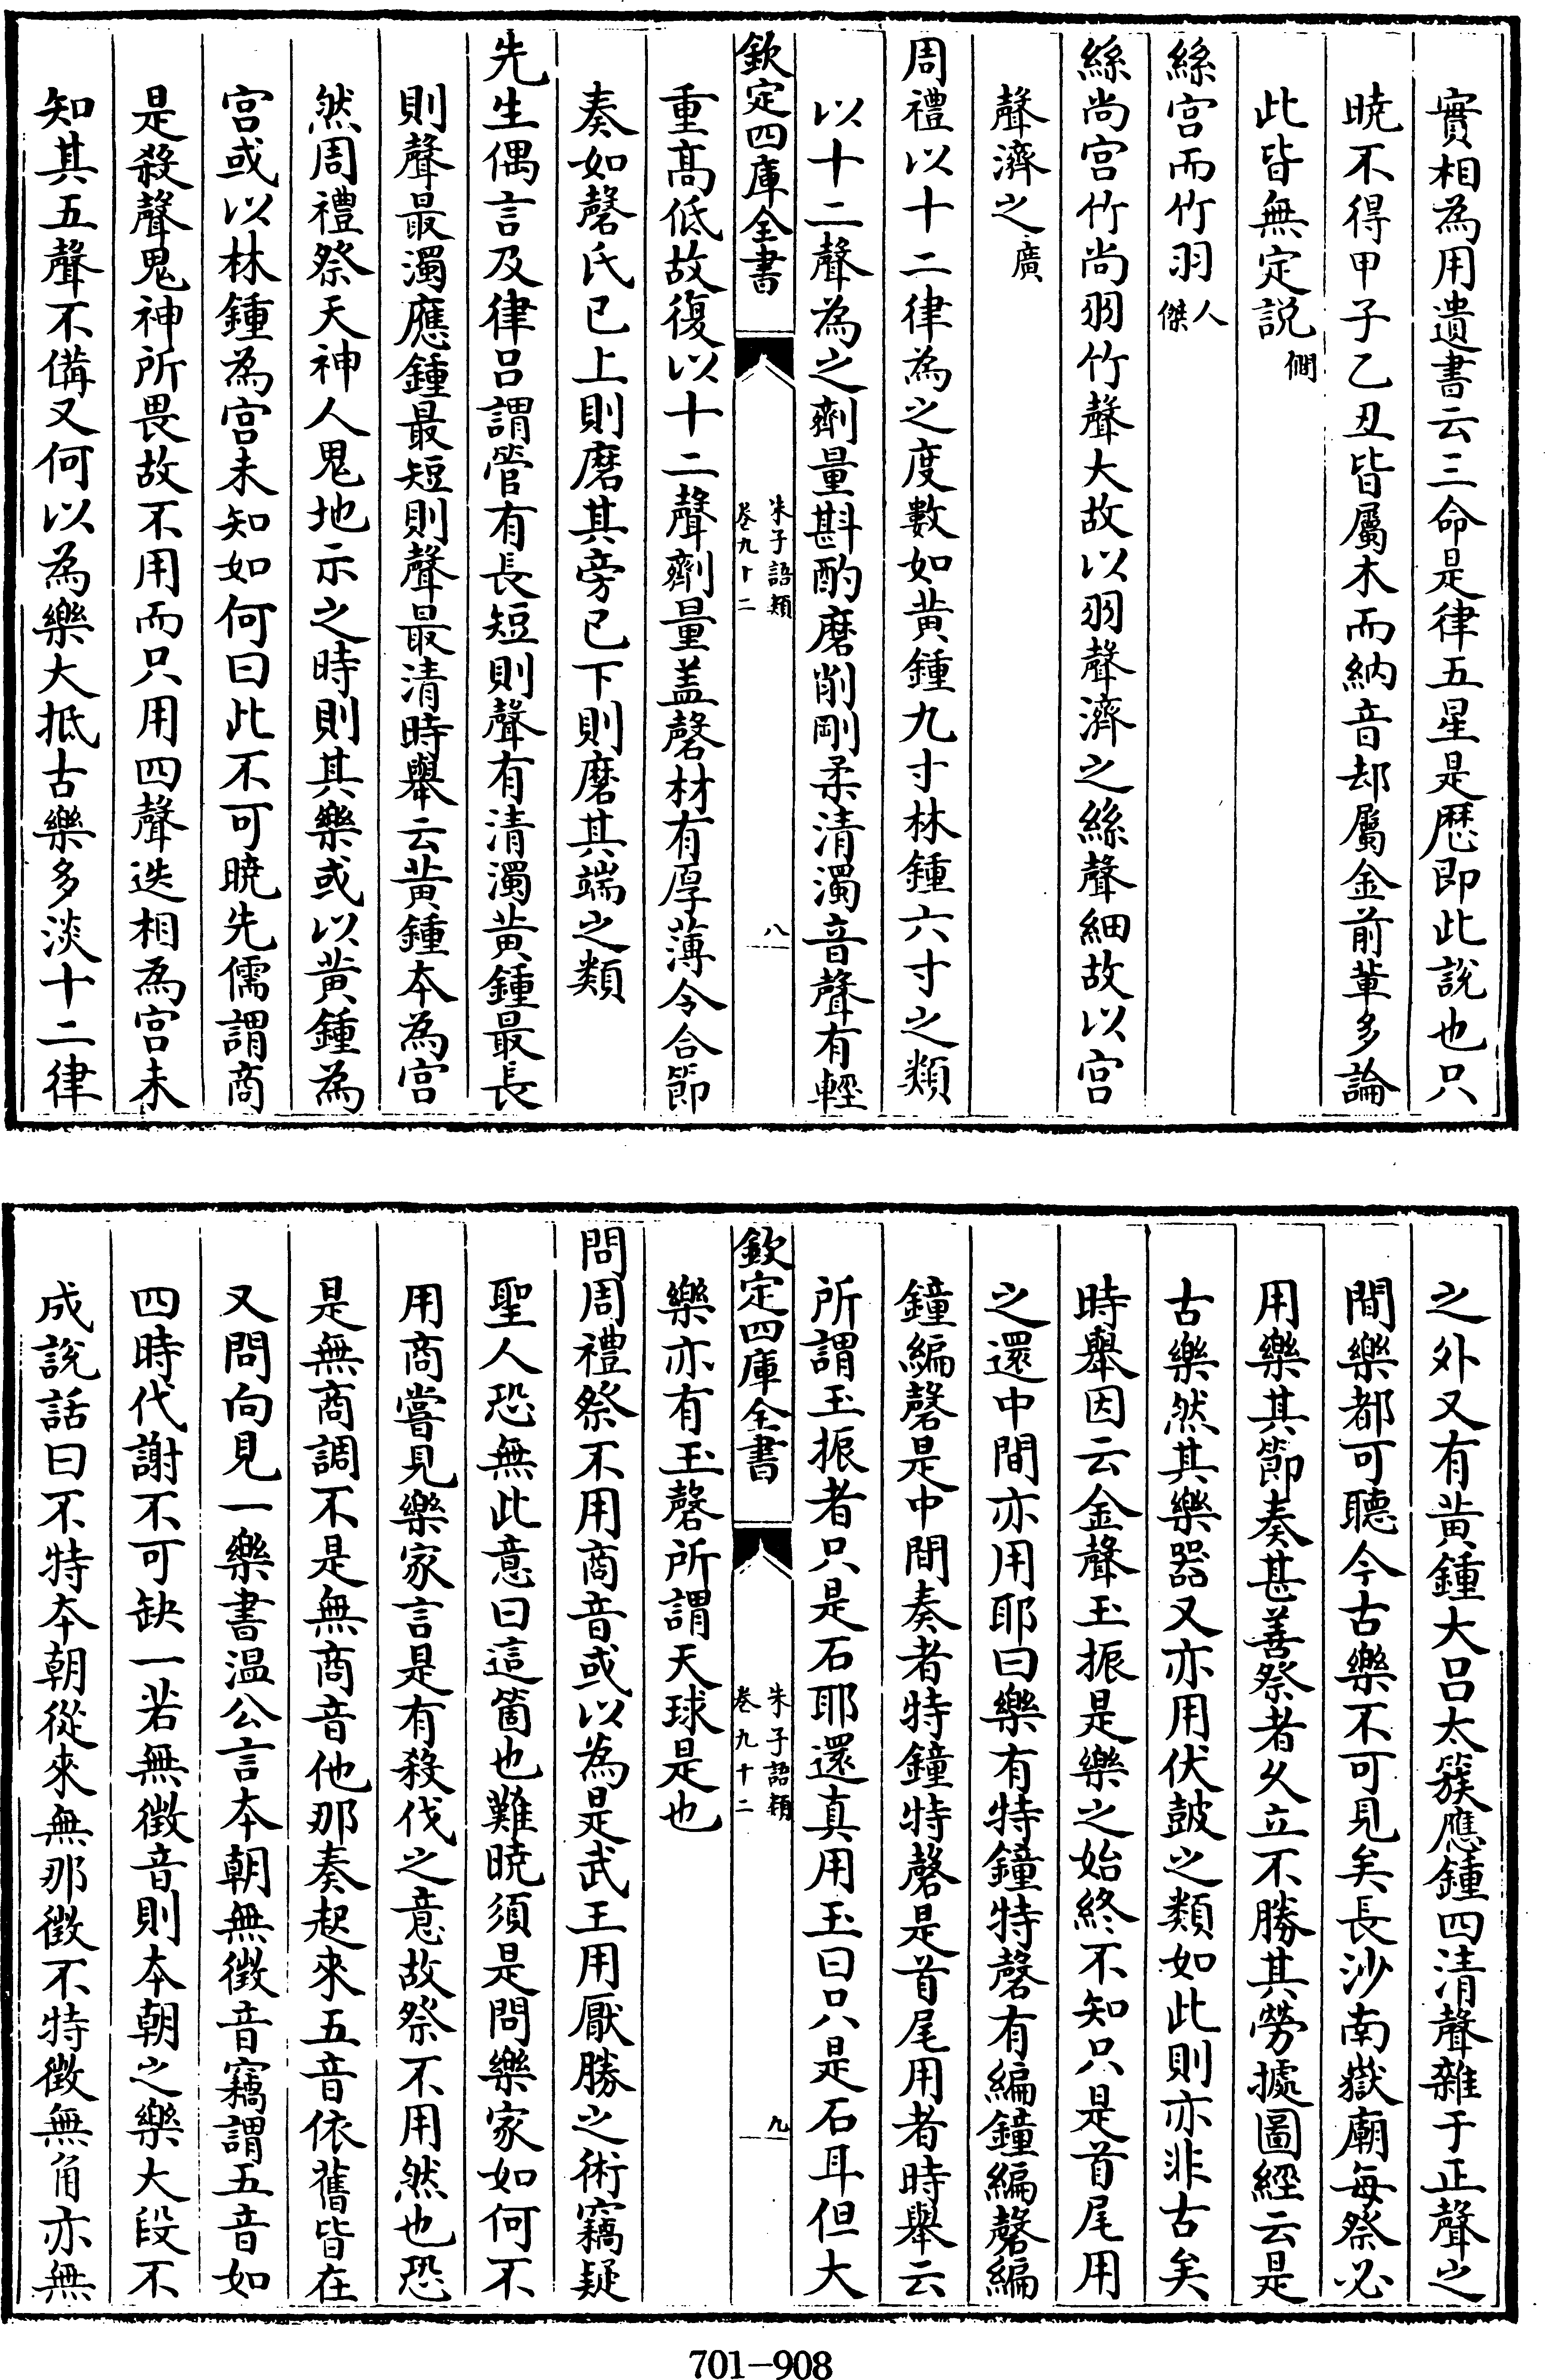 實相為用遺書云三命是律五星是厯即此説也只
曉不得甲子乙丑皆屬木而納音却屬金前輩多論
此皆無定説僩
絲宫而竹羽人傑
絲尚宫竹尚羽竹聲大故以羽聲濟之絲聲細故以宫
聲濟之廣
周禮以十二律為之度數如黄鍾九寸林鍾六寸之類
以十二聲為之劑量斟酌磨削剛柔清濁音聲有輕
欽定四庫全書
朱子語類
卷九十二
八
重髙低故復以十二聲劑量盖磬材有厚薄令合節
奏如磬氏已上則磨其旁已下則磨其端之類
先生偶言及律吕謂管有長短則聲有清濁黄鍾最長
則聲最濁應鍾最短則聲最清時舉云黄鍾本為宫
然周禮祭天神人鬼地示之時則其樂或以黄鍾為
宫或以林鍾為宫未知如何曰此不可曉先儒謂商
是殺聲鬼神所畏故不用而只用四聲迭相為宫未
知其五聲不備又何以為樂大抵古樂多淡十二律
之外又有黄鍾大吕太簇應鍾四清聲雜于正聲之
間樂都可聽今古樂不可見矣長沙南嶽廟每祭必
用樂其節奏甚善祭者久立不勝其勞據圖經云是
古樂然其樂器又亦用伏鼓之類如此則亦非古矣
時舉因云金聲玉振是樂之始終不知只是首尾用
之還中間亦用耶曰樂有特鐘特磬有編鐘編磬編
鐘編磬是中間奏者特鐘特磬是首尾用者時舉云
所謂玉振者只是石耶還真用玉曰只是石耳但大
欽定四庫全書
朱子語類
卷九十二
九
樂亦有玉磬所謂天球是也
問周禮祭不用商音或以為是武王用厭勝之術竊疑
聖人恐無此意曰這箇也難曉須是問樂家如何不
用商嘗見樂家言是有殺伐之意故祭不用然也恐
是無商調不是無商音他那奏起來五音依舊皆在
又問向見一樂書温公言本朝無徵音竊謂五音如
四時代謝不可缺一若無徵音則本朝之樂大段不
成説話曰不特本朝從來無那徵不特徵無角亦無
701-908